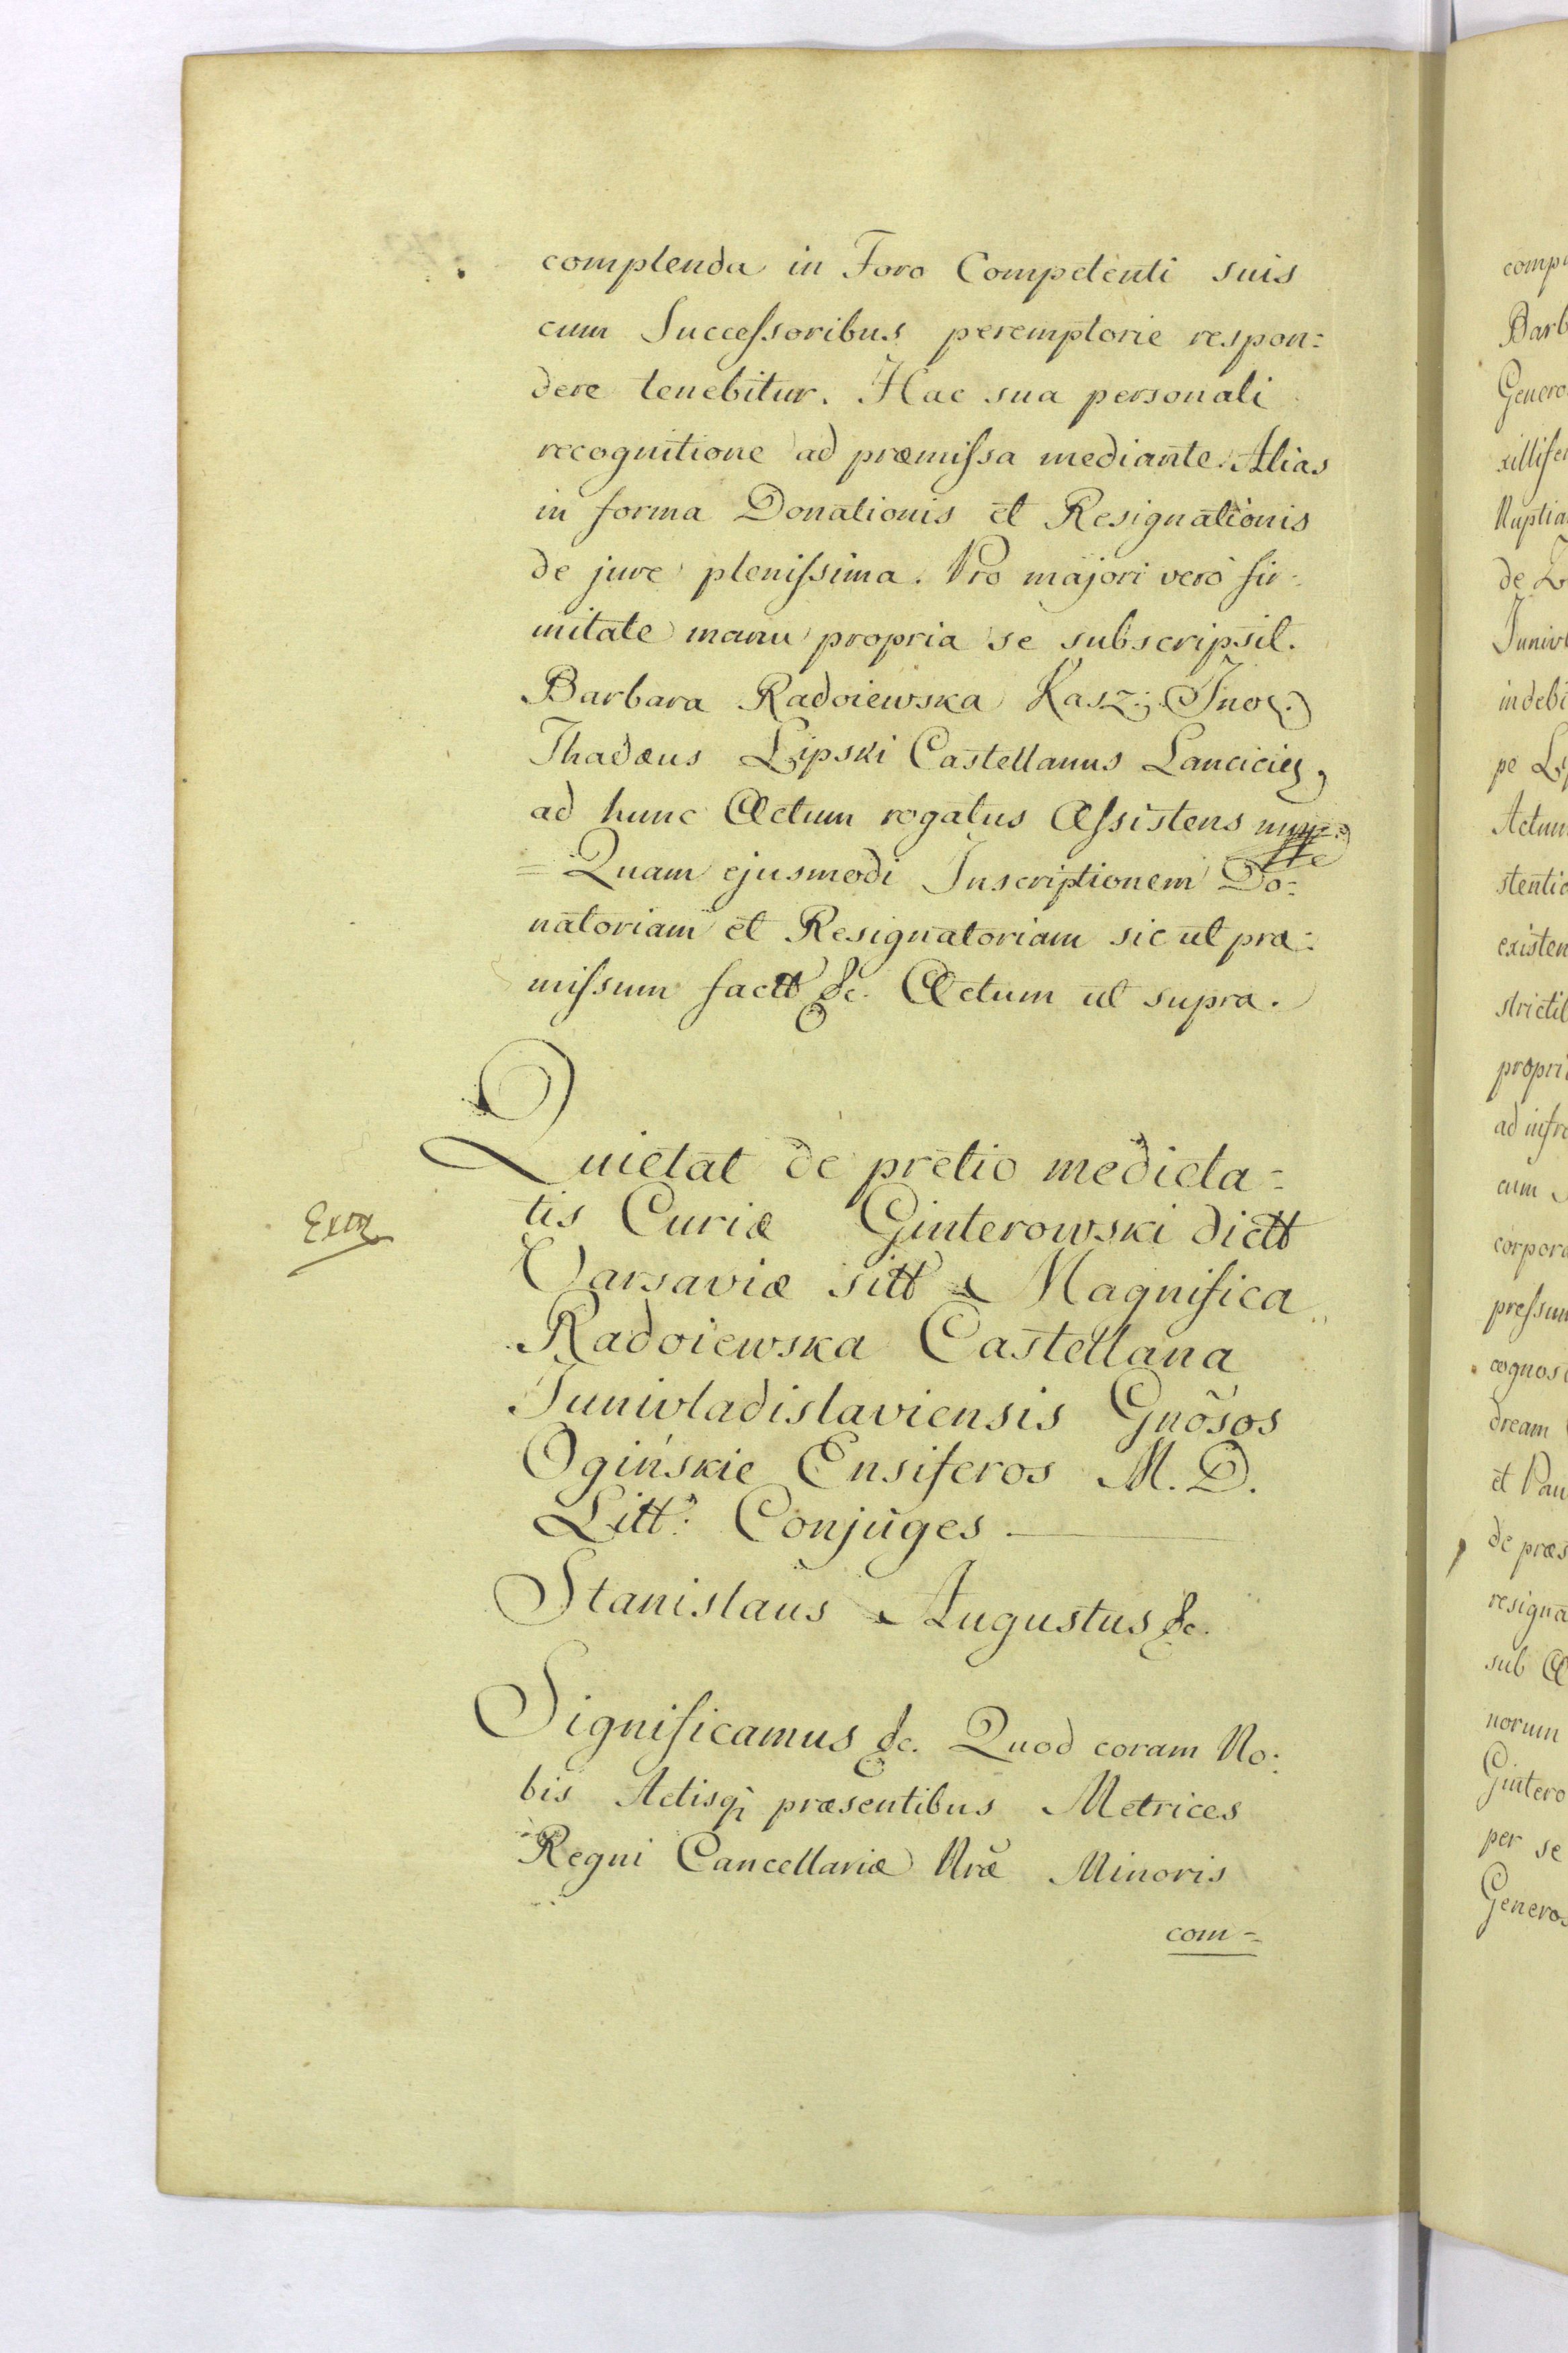 complenda in Foro Competenti suis
cum Succeſsoribus peremptorie respon=
dere tenebitur. Hac sua personali
recognitione ad præmiſsa mediante. Alias
in forma Donationis et Resignationis
de jure pleniſsima. Pro majori verò fir=
mitate manu propria se subscripsit.
Barbara Radoiewska Kasz: Inoł:
Thadæus Lipski Castellanus Lancicien,
ad hunc Actum rogatus Aſsistens mpp
= Quam ejusmodi Inscriptionem Do=
natoriam et Resignatoriam sic ut præ=
miſsum factt &c. Actum ut supra.
Quietat de pretio medieta=
tis Curiæ Ginterowski dictt
Extr
Varsaviæ sitt Magnifica
Radoiewska Castellana
Junivladislaviensis Gnõsos
Ogińskie Ensiferos M. D.
Litt: Conjuges
Stanislaus Augustus &c.
Significamus &c. Quod coram No=
bis Actisq præsentibus Metrices
Regni Cancellariæ Nræ Minoris
com=
comp
Barb
Genero
xillife
Nuptia
de
Junivl
indebi
pe Lip
Actum
stentia
existen
strictil
propri
ad infra
cum
corpora
preſsum
cognos
dream
et Pau
de præs
resigna
sub
norum
Gintero
per se
Generos